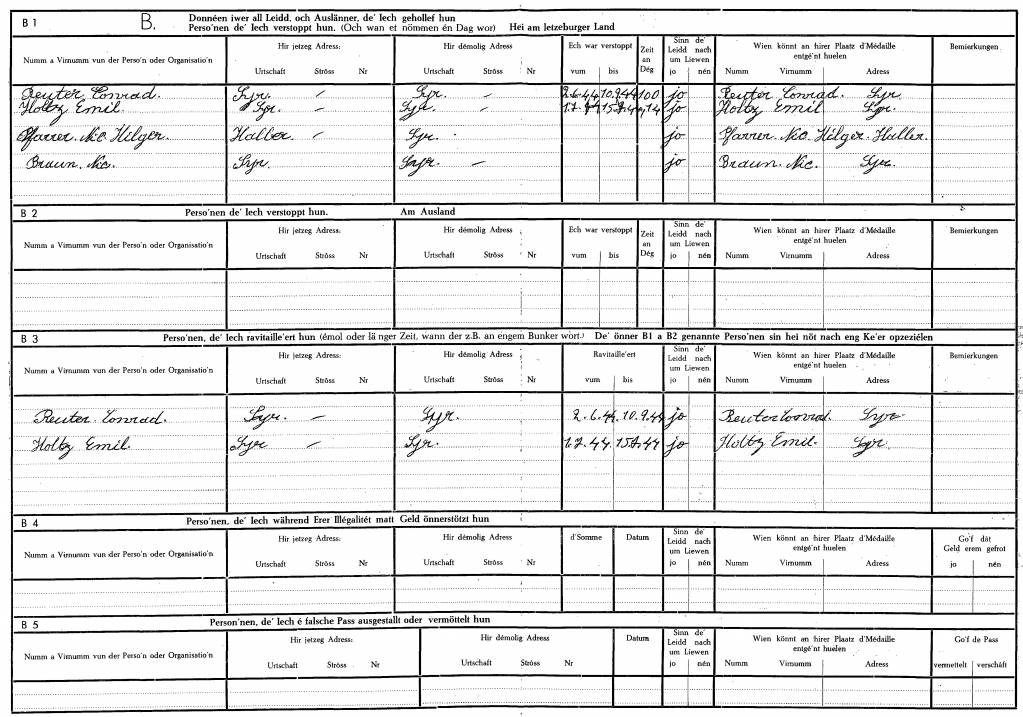 B 1 B. Donnéen iwer all Leidd, och Auslänner, de' Iech gehollef hun
Perso'nen de' Iech verstoppt hun. (Och wan et nömmen én Dag wor) Hei am letzeburger Land
Numm a Virnumm vun der Perso'n oder Organisatio'n Hir jetzeg Adress: Hir démolig Adress Ech war verstoppt Zeit an Dég Sinn de' Leidd nach um Liewen Wien könnt an hirer Plaatz d'Médaille entgé'nt huelen Bemierkungen
Urtschaft Ströss Nr Urtschaft Ströss Nr vum bis jo nén Numm Virnumm Adress
Reuter Conrad. Syr. — Syr. — 2.6.44 10.9.44 100 jo Reuter Conrad Syr.
Holtz Emil. Syr. — Syr. — 14 jo Holtz Emil Syr.
Pfarrer. Nic. Hilger. Haller. — Syr. jo Pfarrer. Nic. Hilger. Haller.
Braun. Nic. Syr. Syr. — jo Braun. Nic. Syr.
B 2 Perso'nen de' Iech verstoppt hun. Am Ausland
Numm a Virnumm vun der Perso'n oder Organisatio'n Hir jetzeg Adress: Hir démolig Adress Ech war verstoppt Zeit an Dég Sinn de' Leidd nach um Liewen Wien könnt an hirer Plaatz d'Médaille entgé'nt huelen Bemierkungen
Urtschaft Ströss Nr Urtschaft Ströss Nr vum bis jo nén Numm Virnumm Adress
B 3 Perso'nen, de' Iech ravitaille'ert hun (émol oder länger Zeit, wann der z.B. an engem Bunker wort.) De' önner B1 a B2 genannte Perso'nen sin hei nöt nach eng Ke'er opzeziélen
Numm a Virnumm vun der Perso'n oder Organisatio'n Hir jetzeg Adress: Hir démolig Adress Ravitaille'ert Sinn de' Leidd nach um Liewen Wien könnt an hirer Plaatz d'Médaille entgé'nt huelen Bemierkungen
Urtschaft Ströss Nr Urtschaft Ströss Nr vum bis jo nén Numm Virnumm Adress
Reuter. Conrad. Syr. — Syr. 2.6.44. 10.9.44 jo Reuter Conrad Syr
Holtz Emil. Syr — Syr. 1.7.44. 15.7.44 jo Holtz Emil. Syr.
B 4 Perso'nen, de' Iech während Erer Illégalitét matt Geld önnerstötzt hun
Numm a Virnumm vun der Perso'n oder Organisatio'n Hir jetzeg Adress: Hir démolig Adress d'Somme Datum Sinn de' Leidd nach um Liewen Wien könnt an hirer Plaatz d'Médaille entgé'nt huelen Go'f dât Geld erem gefrot
Urtschaft Ströss Nr Urtschaft Ströss Nr jo nén Numm Virnumm Adress jo nén
B 5 Person'nen, de' Iech é falsche Pass ausgestallt oder vermöttelt hun
Numm a Virnumm vun der Perso'n oder Organisatio'n Hir jetzeg Adress: Hir démolig Adress Datum Sinn de' Leidd nach um Liewen Wien könnt an hirer Plaatz d'Médaille entgé'nt huelen Go'f de Pass
Urtschaft Ströss Nr Urtschaft Ströss Nr jo nén Numm Virnumm Adress vermettelt verschâft